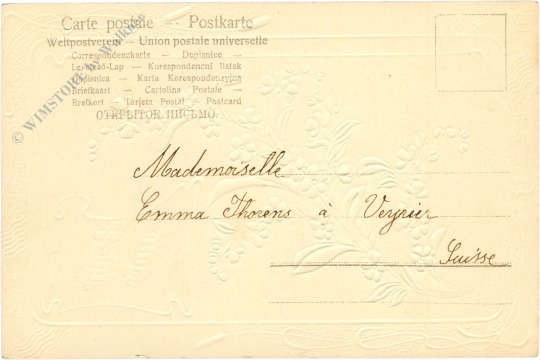 Carte postale — Postkarte
Weltpostverein — Union postale universelle
Correspondenzkarte — Dopisnice —
Levelező-Lap — Korespondencni listek
Dopisnica — Karta Korespondencyjna
Briefkaart — Cartolina Postale —
Brefkort — Tarjeta Postal — Postcard
ОТКРЫТОЕ ПИСЬМО.
© WIMSTORE by Walking
Mademoiselle
Emma Thorens à Veyrier
Suisse